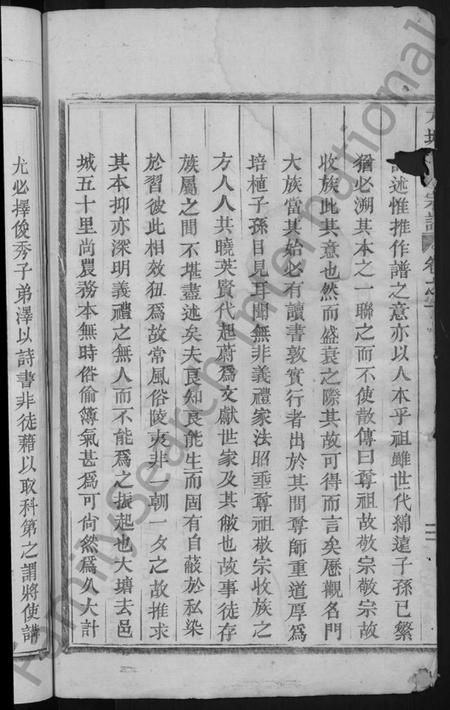 述惟推作譜之意亦以人本乎祖雖世代綿遠子孫已繁
猶必溯其本之一聯之而不使散傳曰尊祖故敬宗敬宗故
收族此其意也然而盛衰之際其故可得而言矣歷觀名門
大族當其始必有讀書敦實行者出於其間尊師重道厚為
培植子孫目見耳聞無非義禮家法昭垂尊祖敬宗收族之
方人人共曉英賢代起蔚為文獻世家及其傲也故事徒存
族屬之間不堪盡述矣夫良知良能生而固有自蔽於私染
於習彼此相效狃為故常風俗陵夷非一朝一夕之故推求
其本抑亦深明義禮之無人而不能為之振起也大塘去邑
城五十里尚農務本無時俗偷薄氣甚為可尙然為久大計
尤必擇俊秀子弟澤以詩書非徒藉以取科第之謂將使講
宗譜
卷之
三
FamilySearch International